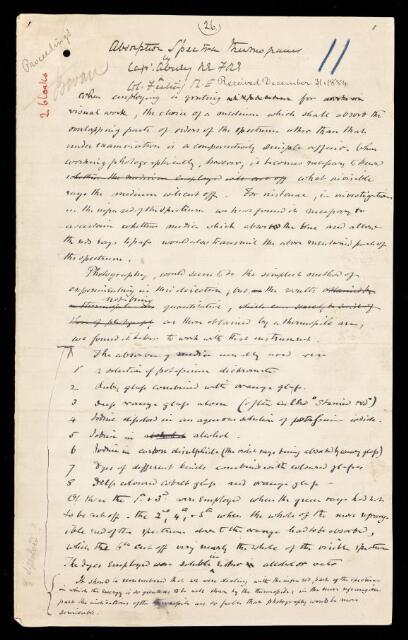 (26)
1
Proceedings
2 blocks
Bevan
11
Absorption Spectra Thermograms
by
Capt. Abney RE FRS
Lt. Col. Festing R.E. Received December 21, 1884
When employing a grating for
visual work, the choice of a medium which shall absorb the
overlapping parts of orders of the spectrum other than that
under examination is a comparatively simple affair. When
working photographically, however, it becomes necessary to know
whether the medium employed will cut off what invisible
rays the medium will cut off. For instance, in investigations
in the infra red of the spectrum we have found it necessary to
ascertain whether media which absorb the blue and allow
the red rays to pass would also transmit the above mentioned part of
the spectrum.
Photography, would seem to be the simplest method of
experimenting in this direction, but as the results
not being
quantitative, which
as those obtained by a thermopile are,
we found it better to work with that instrument.
The absorbing media usually used were
1 a solution of potassium dichromate
2 Ruby glass combined with orange glass.
3 Deep orange glass alone (often called "stained red")
4 Iodine dissolved in an aqueous solution of potassium iodide.
5 Iodine in alcohol.
6 Iodine in carbon disulphide (the violet rays being absorbed by canary glass)
7 Dyes of different kinds combined with coloured glasses
8 Deep coloured cobalt glass and orange glass
Of these the 1st & 3rd were employed when the green rays had not
to be cut off: the 2nd, 4th, & 5th when the whole of the more refrang-
ible end of the spectrum down to the orange had to be absorbed,
which the 4th cut off very nearly the whole of the visible spectrum
The dyes employed were soluble in either alcohol or water
It should be remembered that we were dealing with the infra red, part of the spectrum
in which the energy is so great as to be well shown by the thermopile; in the more refrangible
part the indications of the thermopile are so feeble that photography would be more
serviceable.